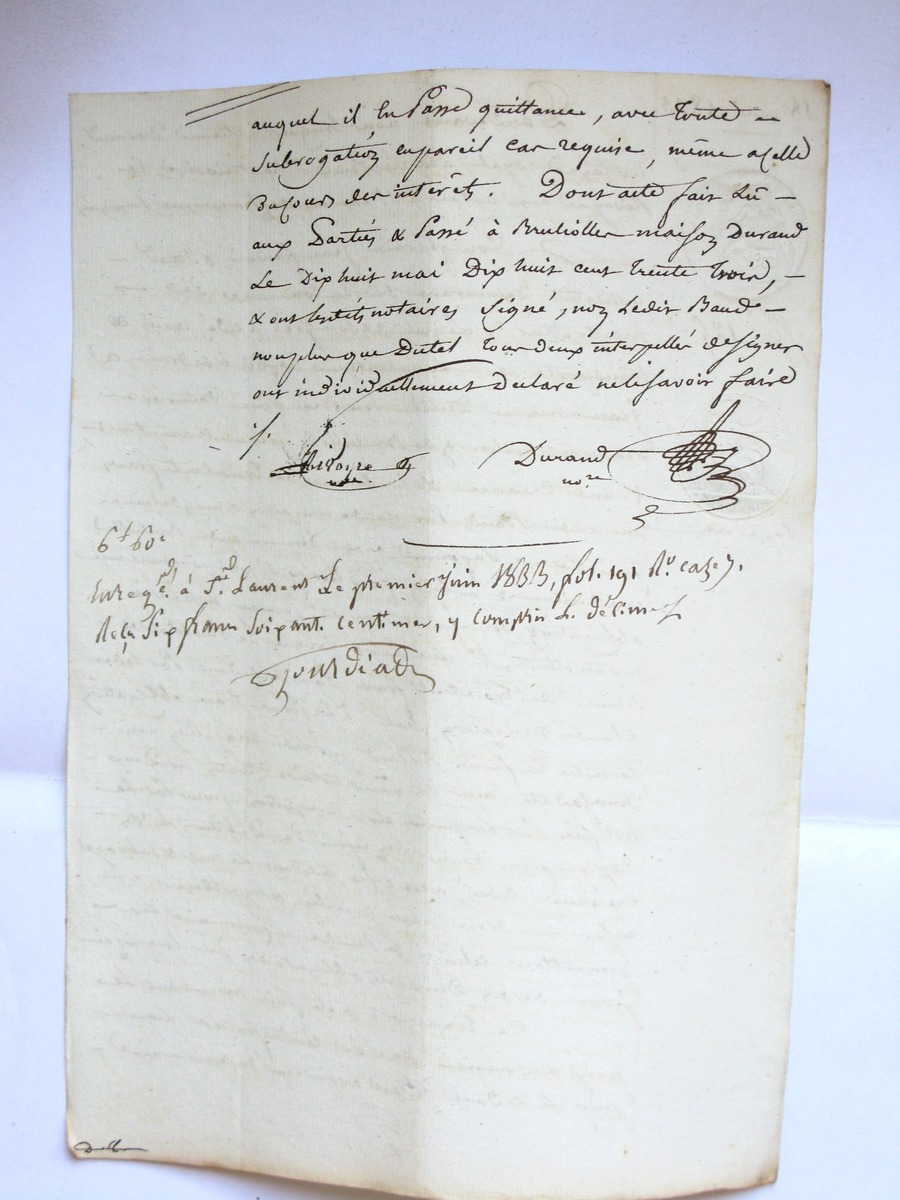 auquel il en Passe quittance, avec Toute
Subrogation en pareil cas requise, même a celle
Du Cours des intérêts. Dont acte fait Lu
aux Parties & Passé à maison Durand
Le Dix huit mai Dix huit cent Trente Trois,
& ont les notaires Signé, non Ledit Baud
non plus que Dutel Tous deux interpellés de Signer
ont individuellement Declaré ne le Savoir faire
./.
Durand
nore nore
6f 60c
Enregé. à St. Laurent Le premier Juin 1833, fol. 191 Ro. case 7.
Reçu Six francs Soixante Centimes, y Compris Le décime